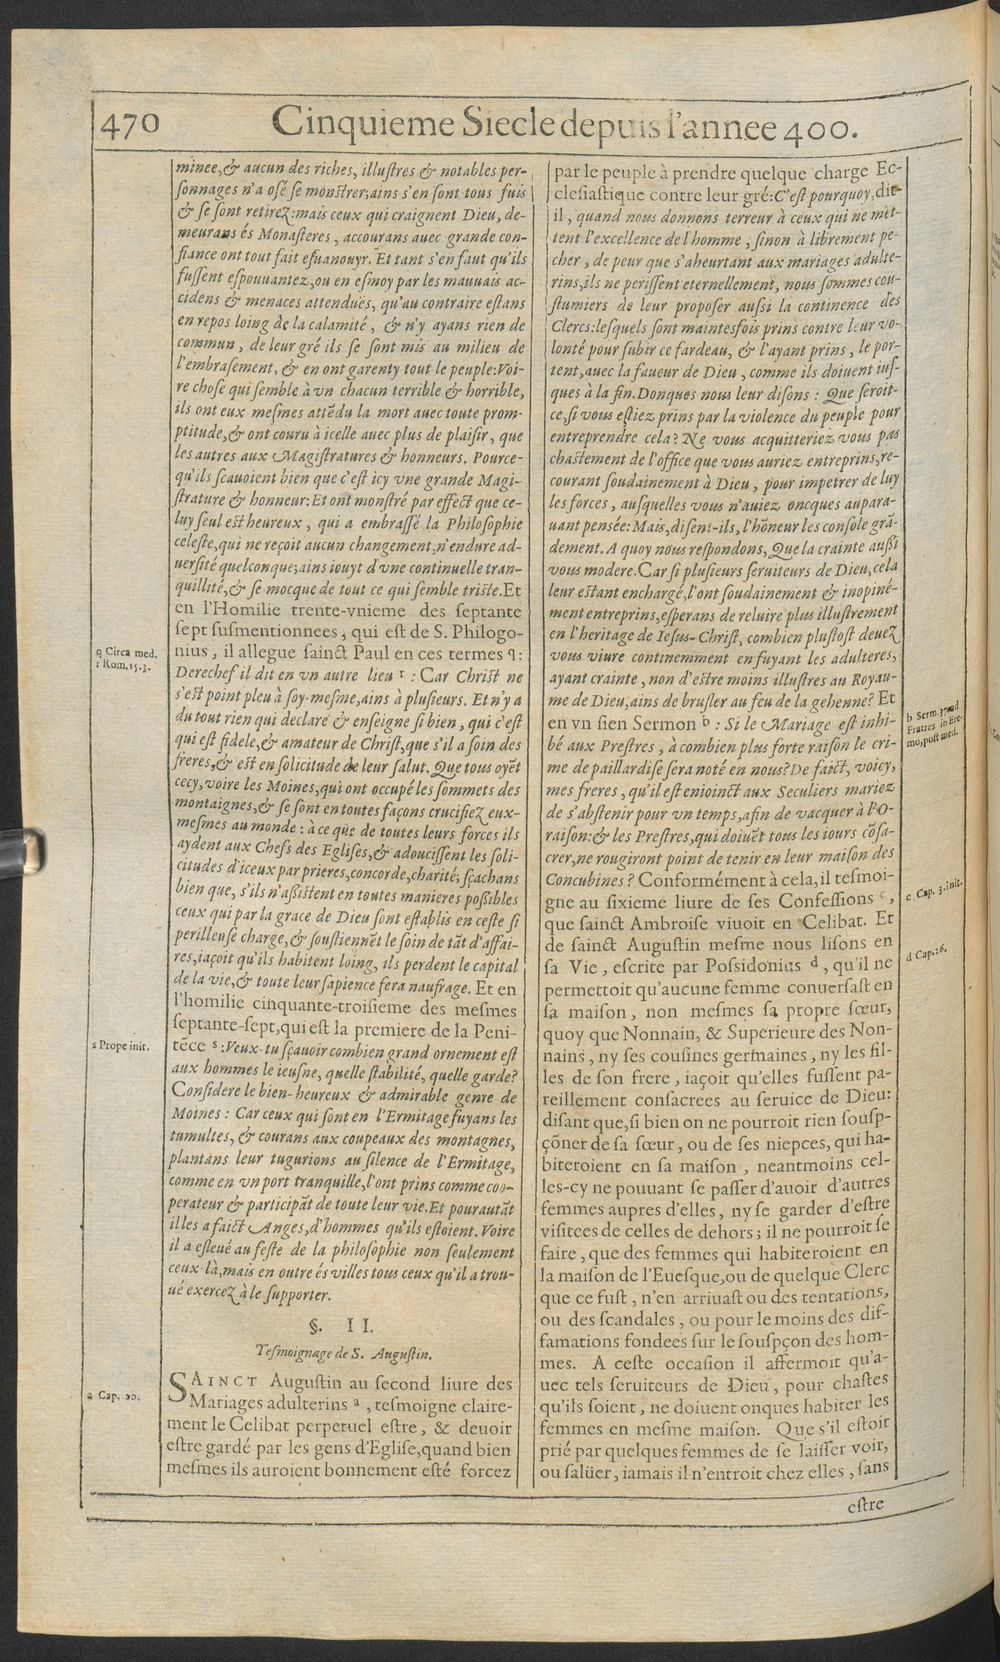 470 Cinquieme Siecle depuis l'annee 400.
minee,& aucun des riches, illuſtres & notables per-
ſonnages n'a oſé ſe monſtrer;ains s'en ſont tous fuis
& ſe ſont retirez:mais ceux qui craignent Dieu, de-
meurans és Monaſteres, accourans auec grande con-
fiance ont tout fait eſuanouyr. Et tant s'en faut qu'ils
fuſſent eſpouuantez,ou en eſmoy par les mauuais ac-
cidens & menaces attenduës, qu'au contraire eſtans
en repos loing de la calamité, & n'y ayans rien de
commun, de leur gré ils ſe ſont mis au milieu de
l'embraſement, & en ont garenty tout le peuple:Voi-
re choſe qui ſemble à vn chacun terrible & horrible,
ils ont eux meſmes attẽdu la mort auec toute prom-
ptitude,& ont couru à icelle auec plus de plaiſir, que
les autres aux Magiſtratures & honneurs. Pource-
qu'ils ſcauoient bien que c'eſt icy vne grande Magi-
ſtrature & honneur:Et ont monſtré par effect que ce-
luy ſeul eſt heureux, qui a embraſſé la Philoſophie
celeſte,qui ne reçoit aucun changement,n'endure ad-
uerſité quelconque;ains iouyt d'vne continuelle tran-
quillité,& ſe mocque de tout ce qui ſemble triſte.Et
en l'Homilie trente-vnieme des ſeptante
ſept ſuſmentionnees, qui eſt de S. Philogo-
nius, il allegue ſainct Paul en ces termes q:
Derechef il dit en vn autre lieu r : Car Chriſt ne
s'eſt point pleu à ſoy-meſme,ains à pluſieurs. Et n'y a
du tout rien qui declare & enſeigne ſi bien, qui c'eſt
qui eſt fidele,& amateur de Chriſt,que s'il a ſoin des
freres,& eſt en ſolicitude de leur ſalut. Que tous oyẽt
cecy,voire les Moines,qui ont occupé les ſommets des
montaignes,& ſe ſont en toutes façons crucifiez eux-
meſmes au monde : à ce que de toutes leurs forces ils
aydent aux Chefs des Egliſes,& adouciſſent les ſoli-
citudes d'iceux par prieres,concorde,charité; ſçachans
bien que, s'ils n'aſſiſtent en toutes manieres poſſibles
ceux qui par la grace de Dieu ſont eſtablis en ceſte ſi
perilleuſe charge,& ſouſtiennẽt le ſoin de tãt d'affai-
res,iaçoit qu'ils habitent loing, ils perdent le capital
de la vie,& toute leur ſapience fera naufrage. Et en
l'homilie cinquante-troiſieme des meſmes
ſeptante-ſept,qui eſt la premiere de la Peni-
tẽce s :Veux-tu ſçauoir combien grand ornement eſt
aux hommes le ieuſne, quelle ſtabilité, quelle garde?
Conſidere le bien-heureux & admirable genre de
Moines : Car ceux qui ſont en l'Ermitage fuyans les
tumultes, & courans aux coupeaux des montagnes,
plantans leur tugurions au ſilence de l'Ermitage,
comme en vn port tranquille,l'ont prins comme coo-
perateur & participãt de toute leur vie.Et pourautãt
il les a faict Anges,d'hommes qu'ils eſtoient. Voire
il a eſleué au feſte de la philoſophie non ſeulement
ceux-là,mais en outre és villes tous ceux qu'il a trou-
ué exercez à le ſupporter.
§. II.
Teſmoignage de S. Auguſtin.
SAINCT Auguſtin au ſecond liure des
Mariages adulterins a, teſmoigne claire-
ment le Celibat perpetuel eſtre, & deuoir
eſtre gardé par les gens d'Egliſe,quand bien
meſmes ils auroient bonnement eſté forcez
q Circa med.
r Rom.15.3.
s Prope init.
a Cap. 20.
par le peuple à prendre quelque charge Ec-
cleſiaſtique contre leur gré:C'eſt pourquoy,dit-
il, quand nous donnons terreur à ceux qui ne met-
tent l'excellence de l'homme, ſinon à librement pe-
cher, de peur que s'aheurtant aux mariages adulte-
rins,ils ne periſſent eternellement, nous ſommes cou-
ſtumiers de leur propoſer auſſi la continence des
Clercs:leſquels ſont maintesfois prins contre leur vo-
lonté pour ſubir ce fardeau, & l'ayant prins, le por-
tent,auec la faueur de Dieu, comme ils doiuent iuſ-
ques à la fin.Donques nous leur diſons : Que ſeroit-
ce,ſi vous eſtiez prins par la violence du peuple pour
entreprendre cela? Ne vous acquitteriez vous pas
chaſtement de l'office que vous auriez entreprins,re-
courant ſoudainement à Dieu, pour impetrer de luy
les forces, auſquelles vous n'auiez oncques aupara-
uant penſée: Mais,diſent-ils, l'hõneur les conſole grã-
dement. A quoy nous reſpondons, Que la crainte auſſi
vous modere.Car ſi pluſieurs ſeruiteurs de Dieu,cela
leur eſtant enchargé,l'ont ſoudainement & inopiné-
ment entreprins,eſperans de reluire plus illuſtrement
en l'heritage de Ieſus-Chriſt, combien pluſtoſt deuez
vous viure continemment en fuyant les adulteres,
ayant crainte, non d'eſtre moins illuſtres au Royau-
me de Dieu,ains de bruſler au feu de la gehenne? Et
en vn ſien Sermon b : Si le Mariage eſt inhi-
bé aux Preſtres, à combien plus forte raiſon le cri-
me de paillardiſe ſera noté en nous? De faict, voicy,
mes freres, qu'il eſt enioinct aux Seculiers mariez
de s'abſtenir pour vn temps,afin de vacquer à l'O-
raiſon:& les Preſtres,qui doiuẽt tous les iours cõſa-
crer,ne rougiront point de tenir en leur maiſon des
Concubines? Conformément à cela,il teſmoi-
gne au ſixieme liure de ſes Confeſſions c,
que ſainct Ambroiſe viuoit en Celibat. Et
de ſainct Auguſtin meſme nous liſons en
ſa Vie, eſcrite par Poſſidonius d, qu'il ne
permettoit qu'aucune femme conuerſaſt en
ſa maiſon, non meſmes ſa propre ſœur,
quoy que Nonnain, & Superieure des Non-
nains, ny ſes couſines germaines, ny les fil-
les de ſon frere, iaçoit qu'elles fuſſent pa-
reillement conſacrees au ſeruice de Dieu:
diſant que,ſi bien on ne pourroit rien ſouſp-
çõner de ſa ſœur, ou de ſes niepces, qui ha-
biteroient en ſa maiſon, neantmoins cel-
les-cy ne pouuant ſe paſſer d'auoir d'autres
femmes aupres d'elles, ny ſe garder d'eſtre
viſitees de celles de dehors; il ne pourroit ſe
faire, que des femmes qui habiteroient en
la maiſon de l'Eueſque,ou de quelque Clerc
que ce fuſt, n'en arriuaſt ou des tentations,
ou des ſcandales, ou pour le moins des dif-
famations fondees ſur le ſouſpçon des hom-
mes. A ceſte occaſion il affermoit qu'a-
uec tels ſeruiteurs de Dieu, pour chaſtes
qu'ils ſoient, ne doiuent onques habiter les
femmes en meſme maiſon. Que s'il eſtoit
prié par quelques femmes de ſe laiſſer voir,
ou ſalüer, iamais il n'entroit chez elles, ſans
b Serm.37.ad
Fratres in Ere-
mo,poſt med.
c Cap. 3.init.
d Cap.26.
eſtre